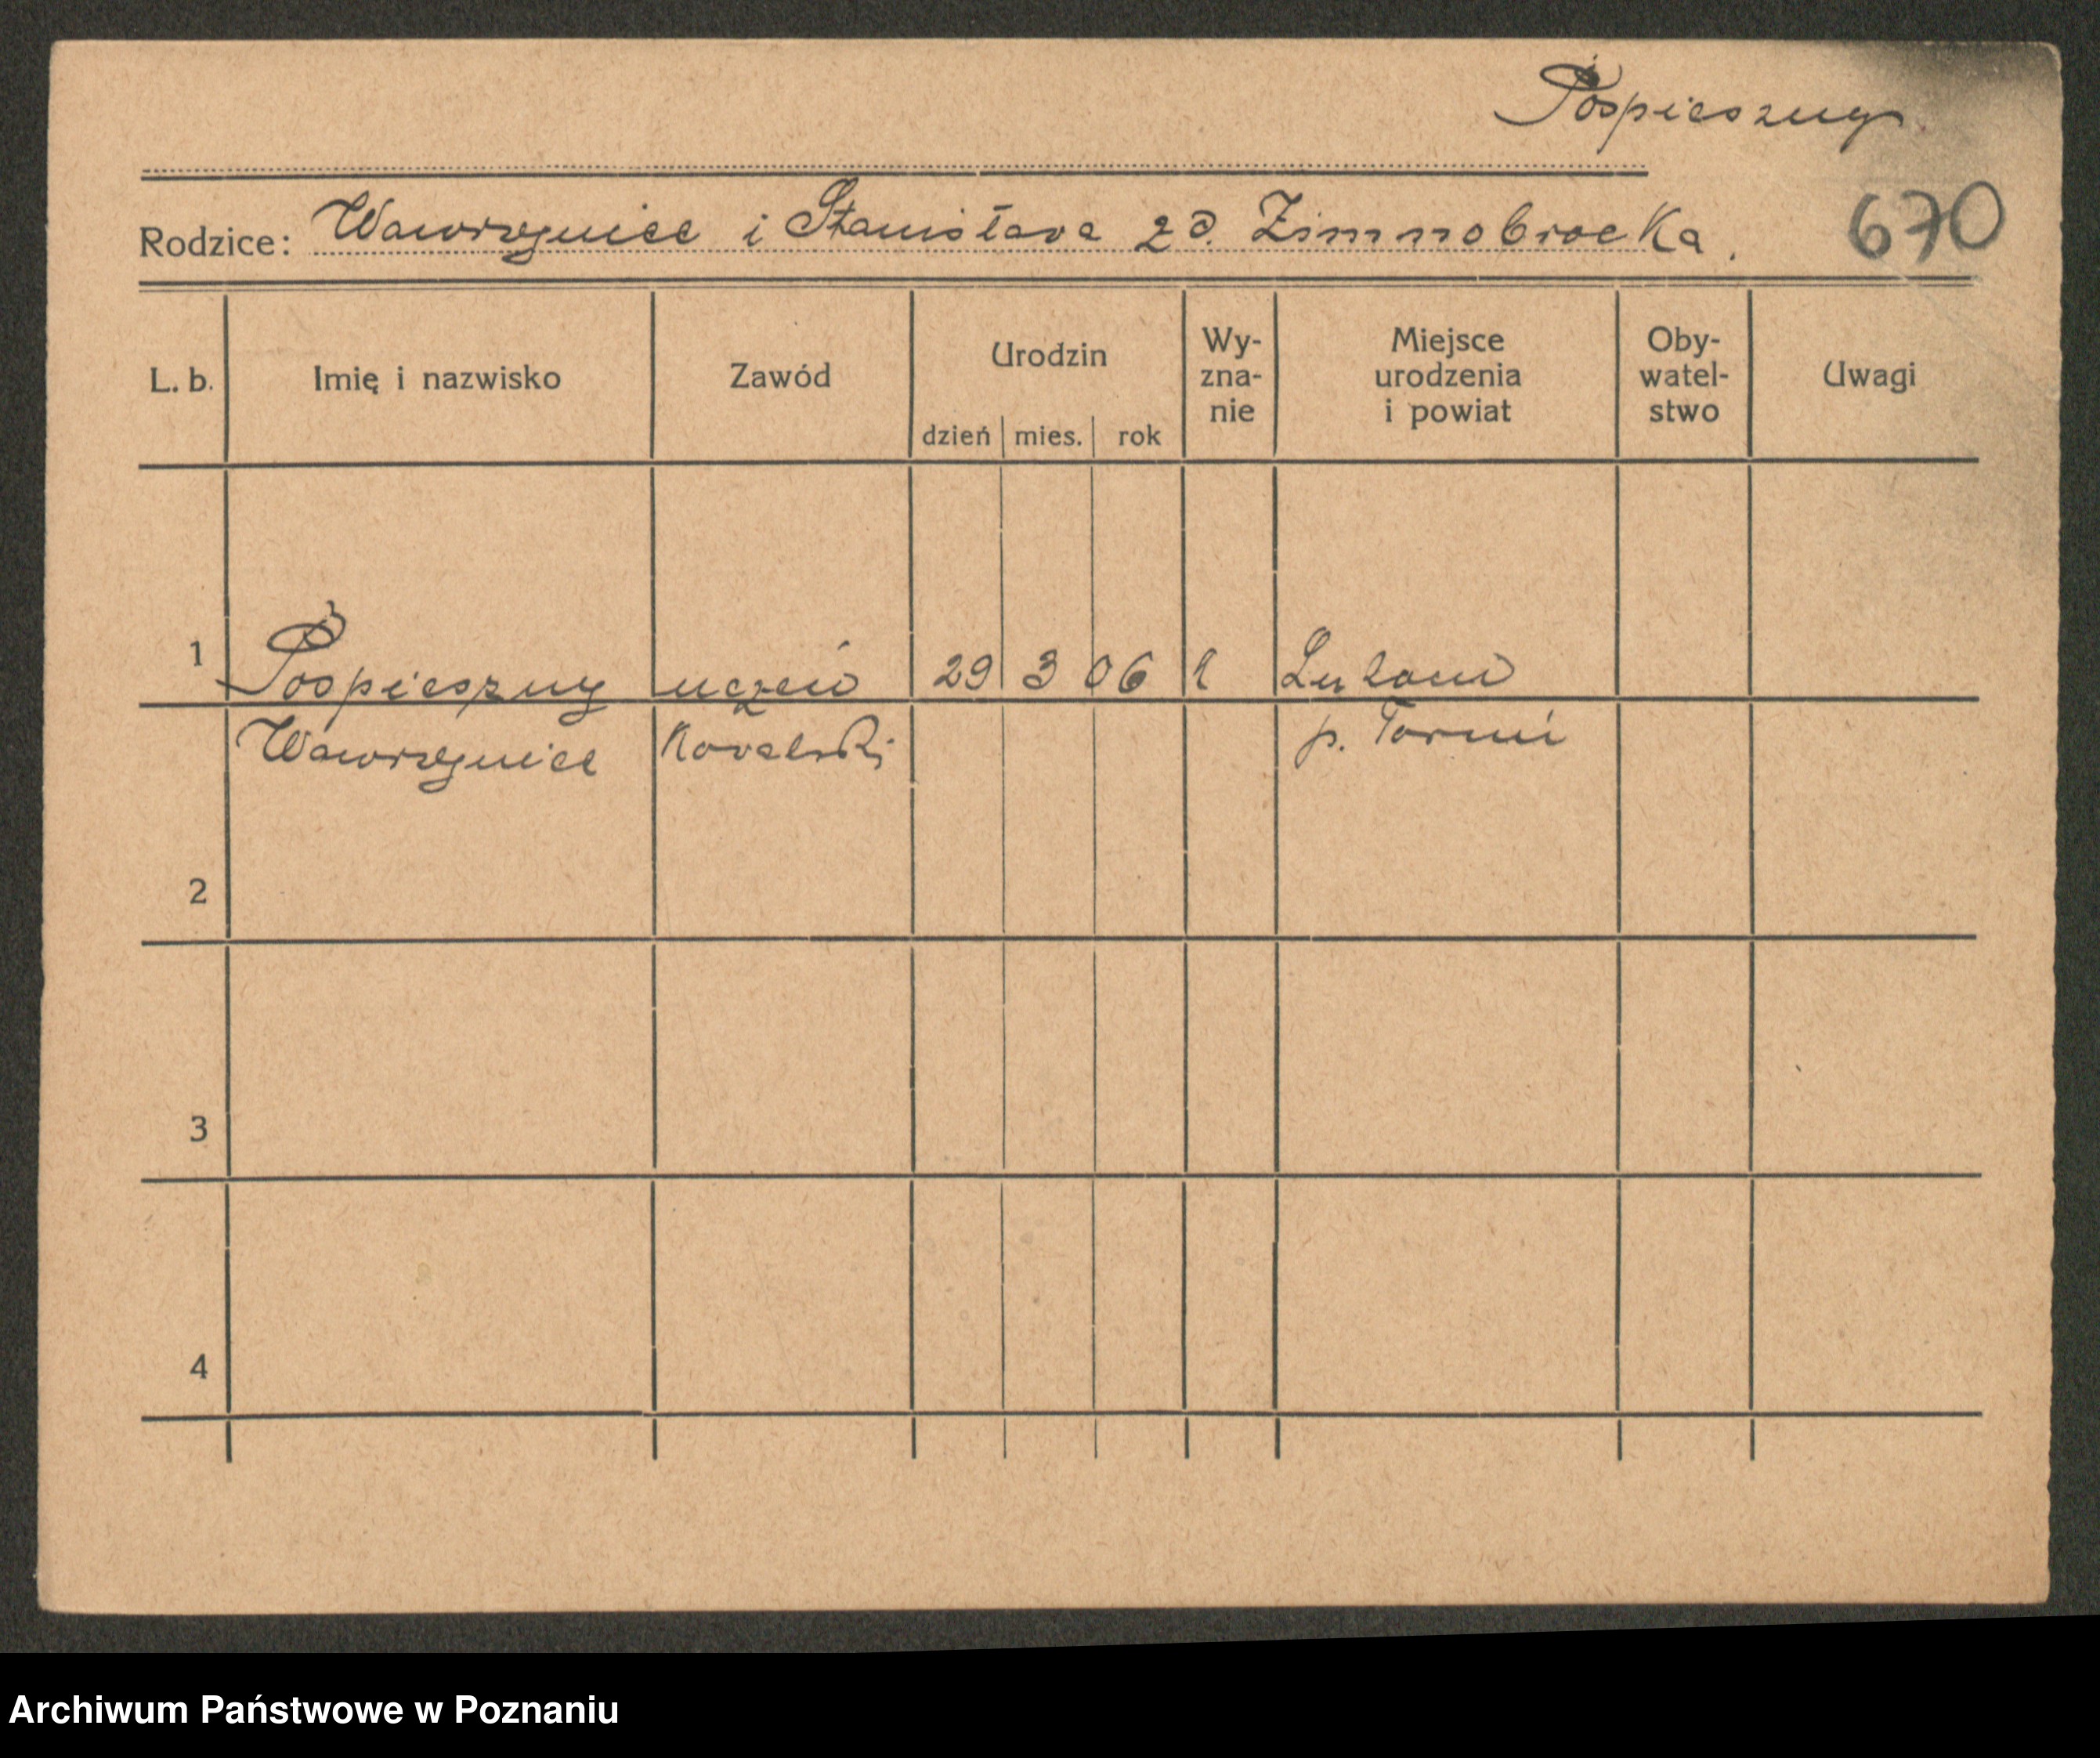 Pospieszny
Rodzice: Wawrzyniec i Stanisława zd. Zimmnobrocka.
670
L. b.
Imię i nazwisko
Zawód
Urodzin
dzień mies. rok
Wy-
zna-
nie
Miejsce
urodzenia
i powiat
Oby-
watel-
stwo
Uwagi
1 Pospieszny uczeń 29 3 06
Wawrzyniec Kovalski p. Toruń
2
3
4
Archiwum Państwowe w Poznaniu